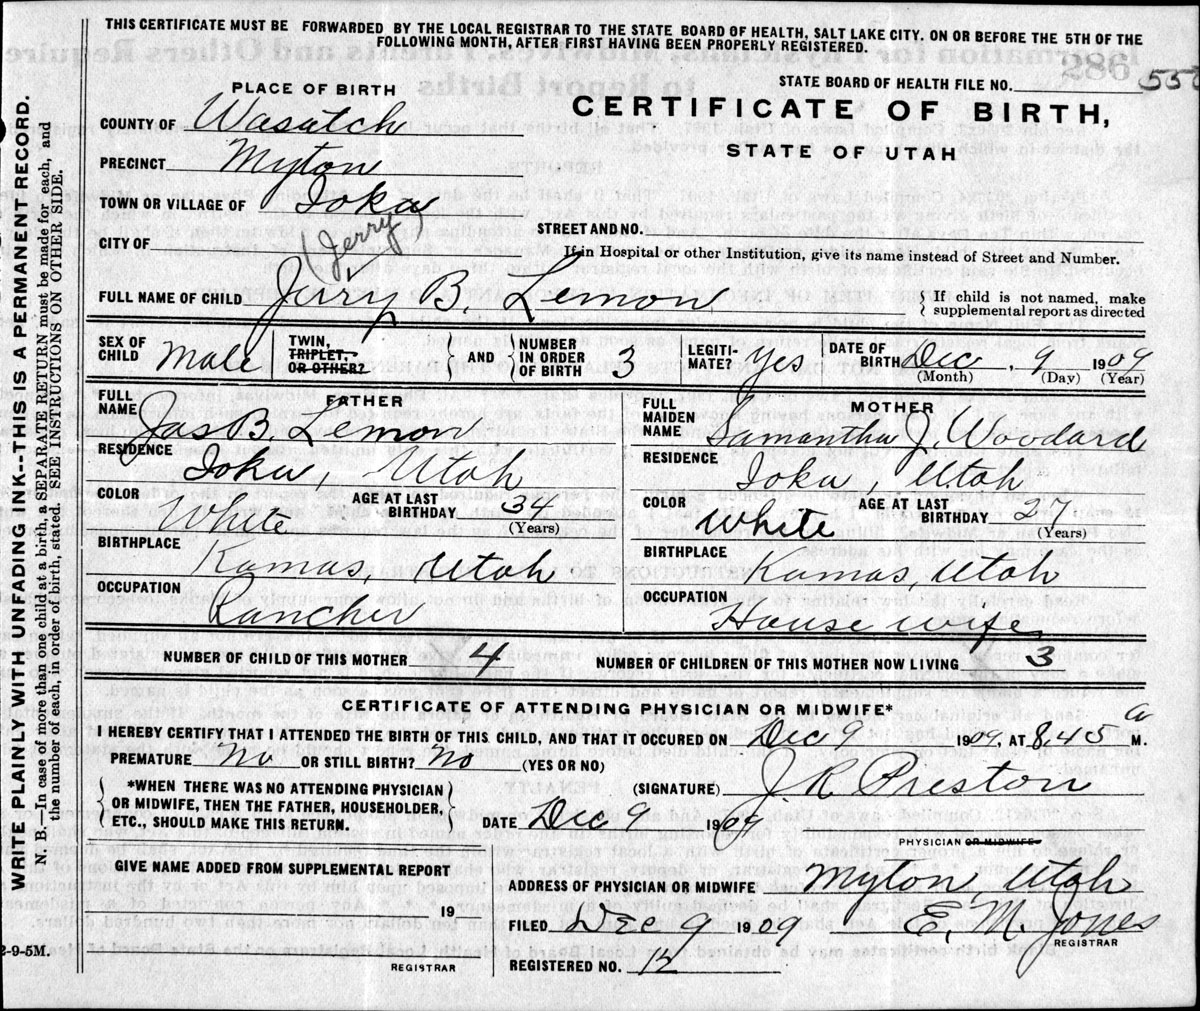 THIS CERTIFICATE MUST BE FORWARDED BY THE LOCAL REGISTRAR TO THE STATE BOARD OF HEALTH, SALT LAKE CITY, ON OR BEFORE THE 5TH OF THE
FOLLOWING MONTH, AFTER FIRST HAVING BEEN PROPERLY REGISTERED.
STATE BOARD OF HEALTH FILE NO.
PLACE OF BIRTH
CERTIFICATE OF BIRTH,
STATE OF UTAH
COUNTY OF Wasatch
PRECINCT Myton
TOWN OR VILLAGE OF Ioka
STREET AND NO.
CITY OF
Jerry
If in Hospital or other Institution, give its name instead of Street and Number.
FULL NAME OF CHILD Jerry B. Lemon
{ If child is not named, make
supplemental report as directed
SEX OF CHILD Male
TWIN, TRIPLET, OR OTHER?
AND
NUMBER IN ORDER OF BIRTH 3
LEGITI-MATE? Yes
DATE OF BIRTH Dec, 9 1909
(Month) (Day) (Year)
FATHER
FULL NAME Jas B. Lemon
RESIDENCE Ioka, Utah
COLOR White
AGE AT LAST BIRTHDAY 34
(Years)
BIRTHPLACE Kamas, Utah
OCCUPATION Rancher
MOTHER
FULL MAIDEN NAME Samantha J Woodard
RESIDENCE Ioka, Utah
COLOR White
AGE AT LAST BIRTHDAY 27
(Years)
BIRTHPLACE Kamas, Utah
OCCUPATION House wife
NUMBER OF CHILD OF THIS MOTHER 4
NUMBER OF CHILDREN OF THIS MOTHER NOW LIVING 3
CERTIFICATE OF ATTENDING PHYSICIAN OR MIDWIFE*
I HEREBY CERTIFY THAT I ATTENDED THE BIRTH OF THIS CHILD, AND THAT IT OCCURED ON Dec 9 1909, AT 8:45 a M.
PREMATURE No OR STILL BIRTH? No (YES OR NO)
*WHEN THERE WAS NO ATTENDING PHYSICIAN
OR MIDWIFE, THEN THE FATHER, HOUSEHOLDER,
ETC., SHOULD MAKE THIS RETURN.
(SIGNATURE) J. R. Preston
DATE Dec 9 1909
PHYSICIAN OR MIDWIFE
GIVE NAME ADDED FROM SUPPLEMENTAL REPORT
19
REGISTRAR
ADDRESS OF PHYSICIAN OR MIDWIFE Myton Utah
FILED Dec 9 1909 E. M. Jones
REGISTRAR
REGISTERED NO. 12
WRITE PLAINLY WITH UNFADING INK--THIS IS A PERMANENT RECORD.
N. —In case of more than one child at a birth, a SEPARATE RETURN must be made for each, and
the number of each, in order of birth, stated. SEE INSTRUCTIONS ON OTHER SIDE.
2-9-5M.